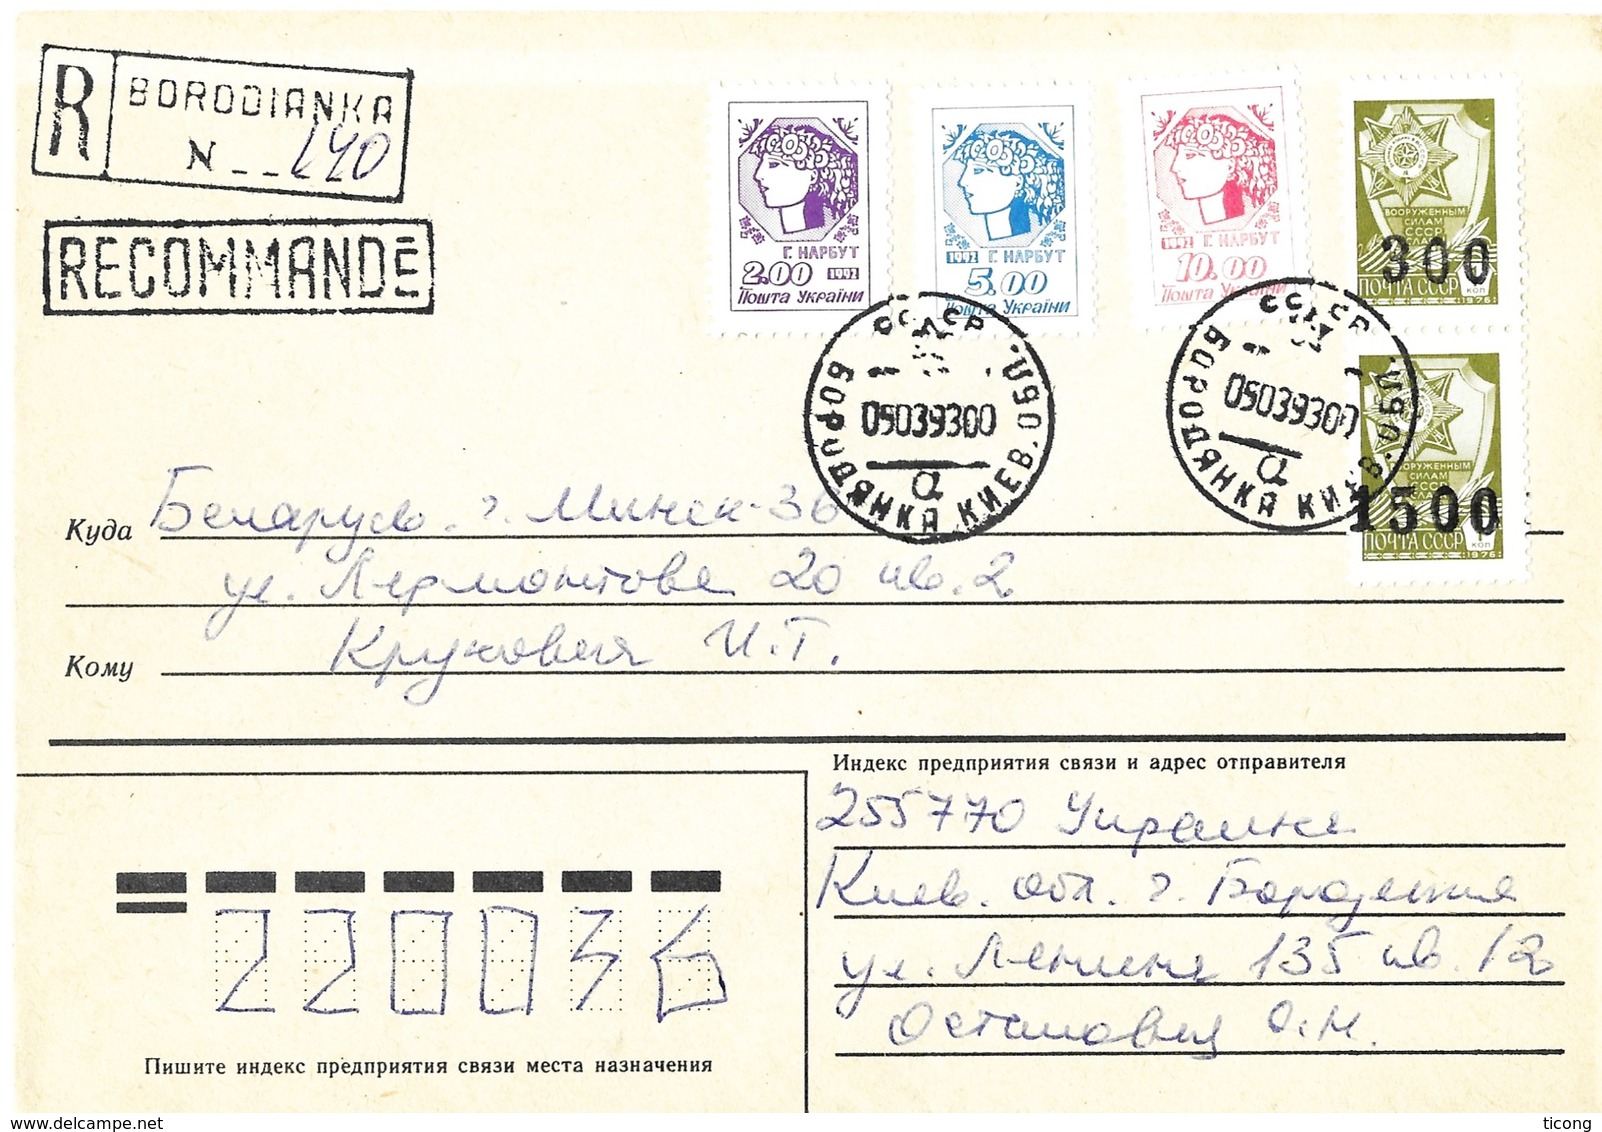 R BORODIANKA
N__240
RECOMMANDÉ
Г. НАРБУТ
2.00 1992
Пошта України
1992 Г. НАРБУТ
5.00
Пошта України
1992 Г. НАРБУТ
10.00
Пошта України
ВООРУЖЕННЫМ
СИЛАМ
СССР
СЛАВА
300
ПОЧТА СССР КОП
1976
ВООРУЖЕННЫМ
СИЛАМ
СССР
СЛАВА
1500
ПОЧТА СССР 1 КОП
1976
СССР
05039300
а
БОРОДЯНКА КИЕВ. ОБЛ.
СССР
05039300
а
БОРОДЯНКА КИЕВ. ОБЛ.
Куда Беларусь. г. Минск-36
ул. Лермонтова 20 кв. 2
Кому И.Т.
Индекс предприятия связи и адрес отправителя
255770 Украина
Киев. обл. г. Бородянка
ул. Ленина 135 кв. 12
О.Н.
220036
Пишите индекс предприятия связи места назначения
www.delcampe.net
ticong